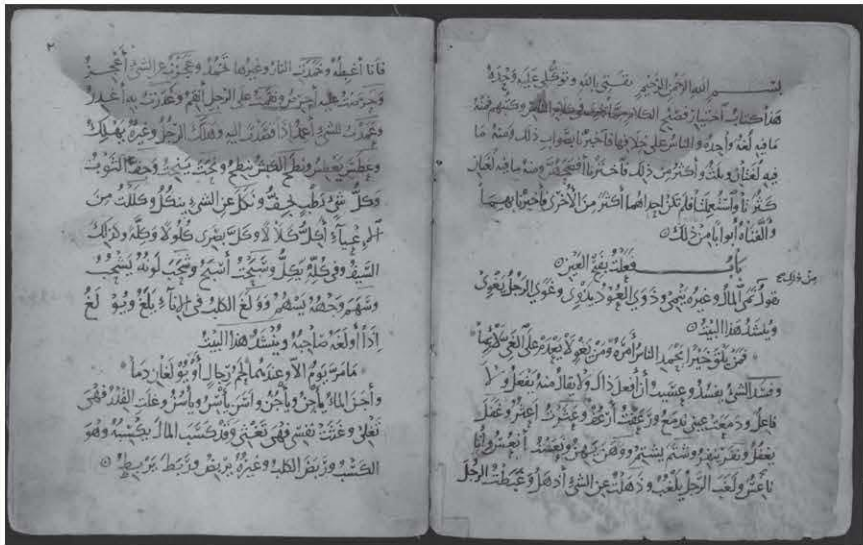 بسم الله الرحمن الرحيم ثقتي بالله وتوكلي عليه وحده
هذا كتاب اختيار فصيح الكلام مما يجري في كلام الناس وكتبهم فمنه
ما فيه لغة واحدة والناس على خلافها فأخبرنا بصواب ذلك ومنه ما
فيه لغتان وثلث وأكثر من ذلك فاخترنا أفصحهن ومنه ما فيه لغتان
كثرتا واستعملتا فلم تكن إحداهما أكثر من الأخرى فأخبرنا بهما
وألفناه أبوابا من ذلك
باب فعلت بفتح العين
من ذلك
تقول نمى المال وغيره ينمي وذوى العود يذوي وغوى الرجل يغوي
وينشد هذا البيت
فمن يلق خيرا يحمد الناس أمره ومن يغو لا يعدم على الغي لائما
وفسد الشيء يفسد وعسيت أن أفعل ذاك ولا يقال منه يفعل ولا
فاعل ودمعت عيني تدمع ورعفت أرعف وعثرت أعثر وغفل
يغفل ونفر ينفر وشتم يشتم ووهن يهن ونعست أنعس وأنا
ناعس ولغب الرجل يلغب وذهلت عن الشيء أذهل وغبطت الرجل
٢
فأنا أغبطه وخمدت النار وغيرها تخمد وعجزت عن الشيء أعجز
وحرصت عليه أحرص ونقمت على الرجل أنقم وغدرت به أغدر
وعمدت للشيء أعمد إذا قصدت إليه وهلك الرجل وغيره يهلك
وعطس يعطس ونطح الكبش ينطح ونحت ينحت وجف الثوب
وكل شيء رطب يجف ونكل عن الشيء ينكل وكللت من
الإعياء أكل كلالا وكل بصري كلولا وكلة وكذلك
السيف وفي كله يكل وسبحت أسبح وشحب لونه يشحب
وسهم وجهه يسهم وولغ الكلب في الإناء يلغ ويولغ
إذا أولغه صاحبه وينشد هذا البيت
ما مر يوم إلا وعندهما لحم رجال أو يولغان دما
وأجن الماء يأجن ويأجن وأسن يأسن ويأسن وغلت القدر فهي
تغلي وغثت نفسي فهي تغثي وقد كسب المال يكسبه وهو
الكسب وربض الكلب وغيره يربض وربط يربط